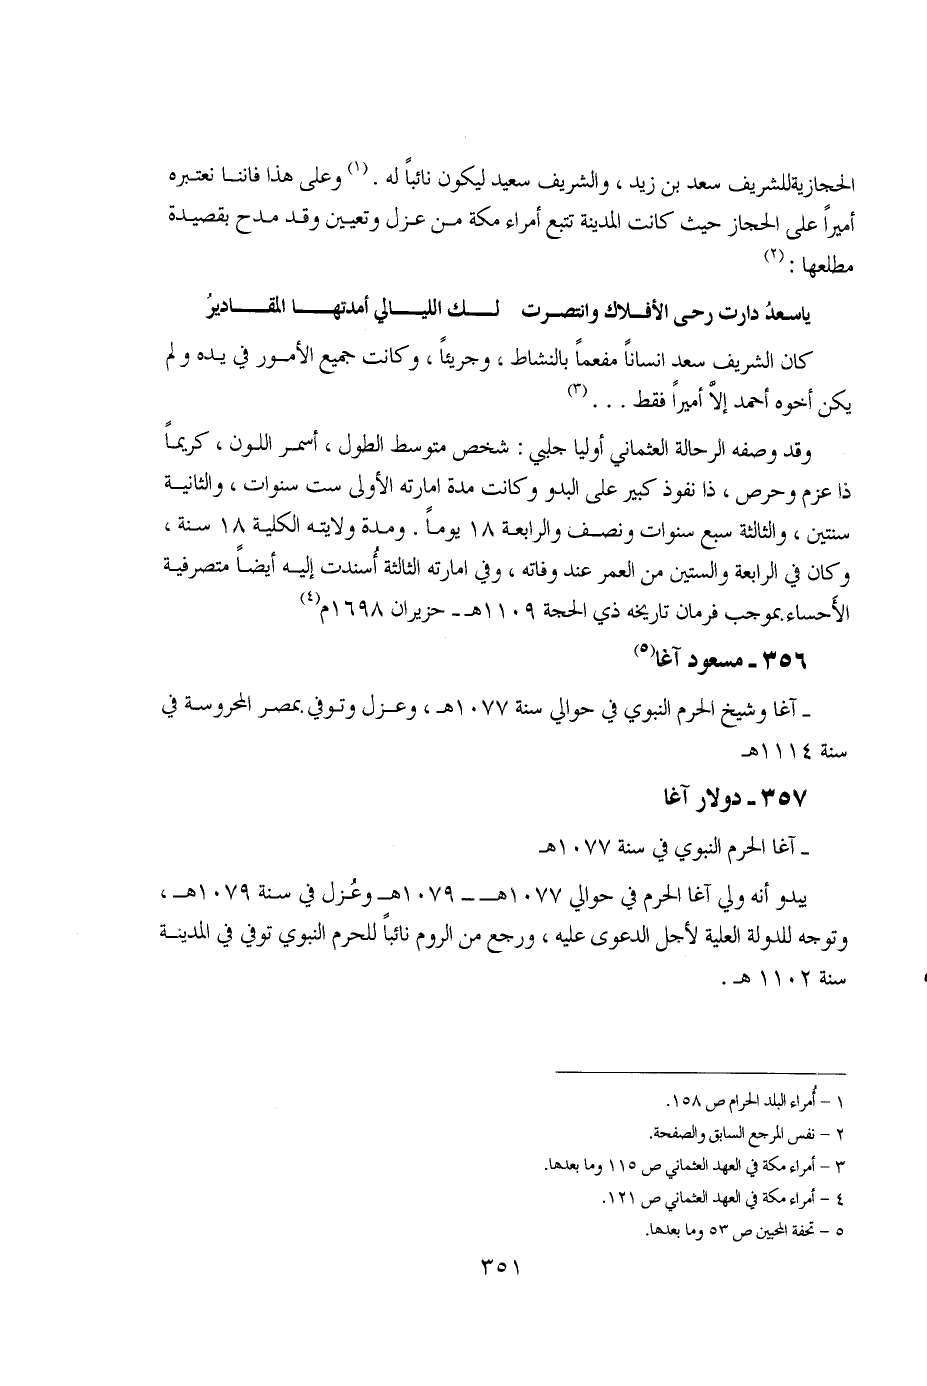 الحجازيةللشريف سعد بن زيد ، والشريف سعيد ليكون نائباً له . (١) وعلى هذا فاننا نعتبره
أميراً على الحجاز حيث كانت المدينة تتبع أمراء مكة من عزل وتعيين وقد مدح بقصيدة
مطلعها : (٢)
ياسعدُ دارت رحى الأفلاك وانتصرت لك الليالي أمدتها المقاديرُ
كان الشريف سعد انساناً مفعماً بالنشاط ، وجريئاً ، وكانت جميع الأمور في يده ولم
يكن أخوه أحمد إلاَّ أميراً فقط . . . (٣)
وقد وصفه الرحالة العثماني أوليا جلبي : شخص متوسط الطول ، أسمر اللون ، كريماً
ذا عزم وحرص ، ذا نفوذ كبير على البدو وكانت مدة امارته الأولى ست سنوات ، والثانية
سنتين ، والثالثة سبع سنوات ونصف والرابعة ١٨ يوماً . ومدة ولايته الكلية ١٨ سنة ،
وكان في الرابعة والستين من العمر عند وفاته ، وفي امارته الثالثة أُسندت إليه أيضاً متصرفية
الأحساء بموجب فرمان تاريخه ذي الحجة ١١٠٩هـ ـ حزيران ١٦٩٨م(٤)
٣٥٦ ـ مسعود آغا(٥)
ـ آغا وشيخ الحرم النبوي في حوالي سنة ١٠٧٧هـ ، وعزل وتوفي بمصر المحروسة في
سنة ١١١٤هـ
٣٥٧ ـ دولار آغا
ـ آغا الحرم النبوي في سنة ١٠٧٧هـ
يبدو أنه ولي آغا الحرم في حوالي ١٠٧٧هـ ـ ١٠٧٩هـ وعُزل في سنة ١٠٧٩هـ ،
وتوجه للدولة العلية لأجل الدعوى عليه ، ورجع من الروم نائباً للحرم النبوي توفي في المدينة
سنة ١١٠٢ هـ .
١ – أُمراء البلد الحرام ص ١٥٨.
٢ – نفس المرجع السابق والصفحة.
٣ – أمراء مكة في العهد العثماني ص ١١٥ وما بعدها.
٤ – أمراء مكة في العهد العثماني ص ١٢١.
٥ – تحفة المحبين ص ٥٣ وما بعدها.
٣٥١